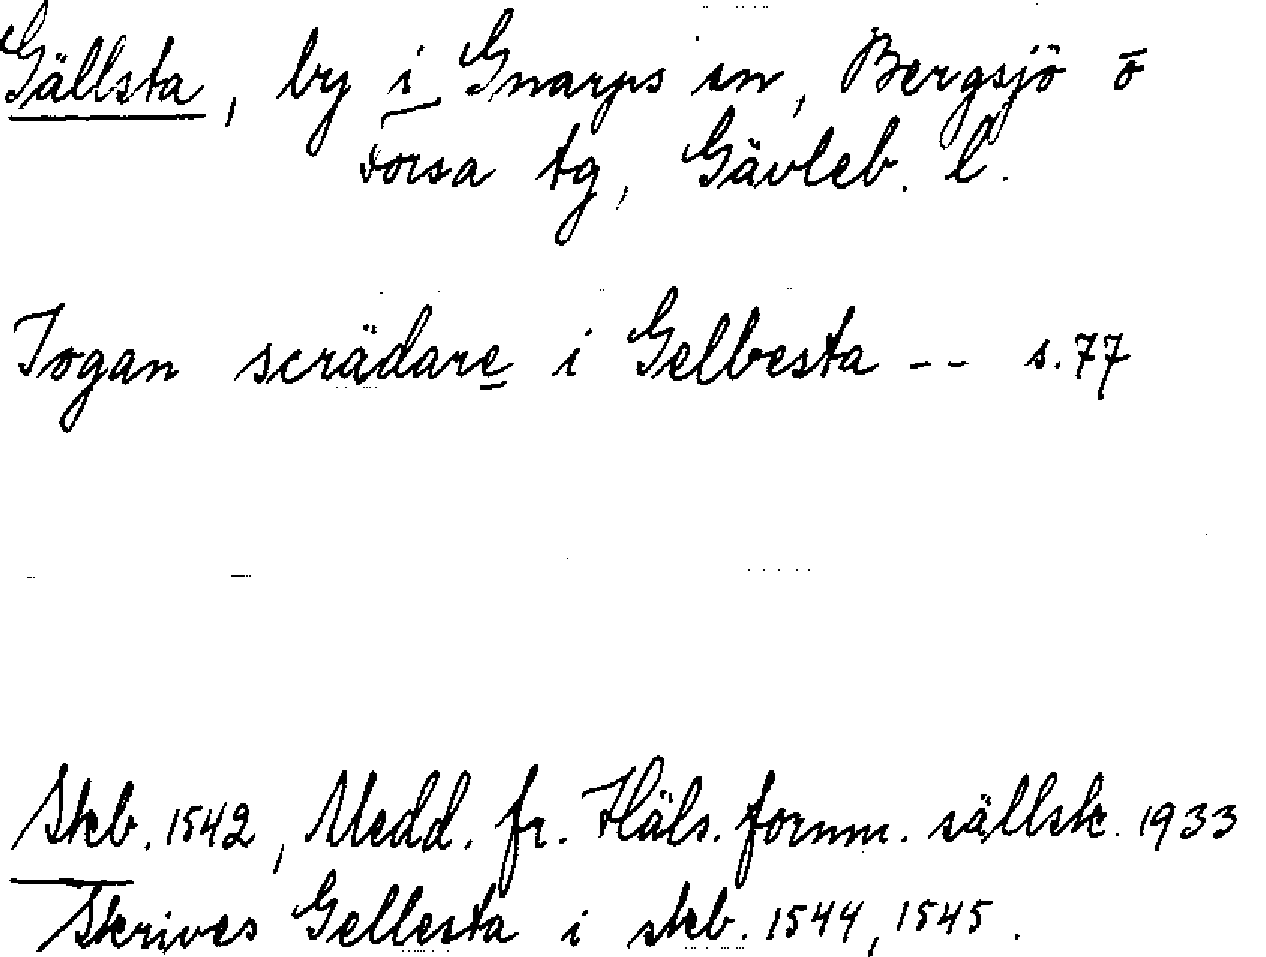 Gällsta, by i Gnarps sn, Bergsjö o
Forsa tg, Gävleb. l.
Jogan scrädare i Gelbesta -- s.77
Skb. 1542, Medd. fr. Häls. fornm. sällsk. 1933
Skrives Gellesta i skb. 1544, 1545.